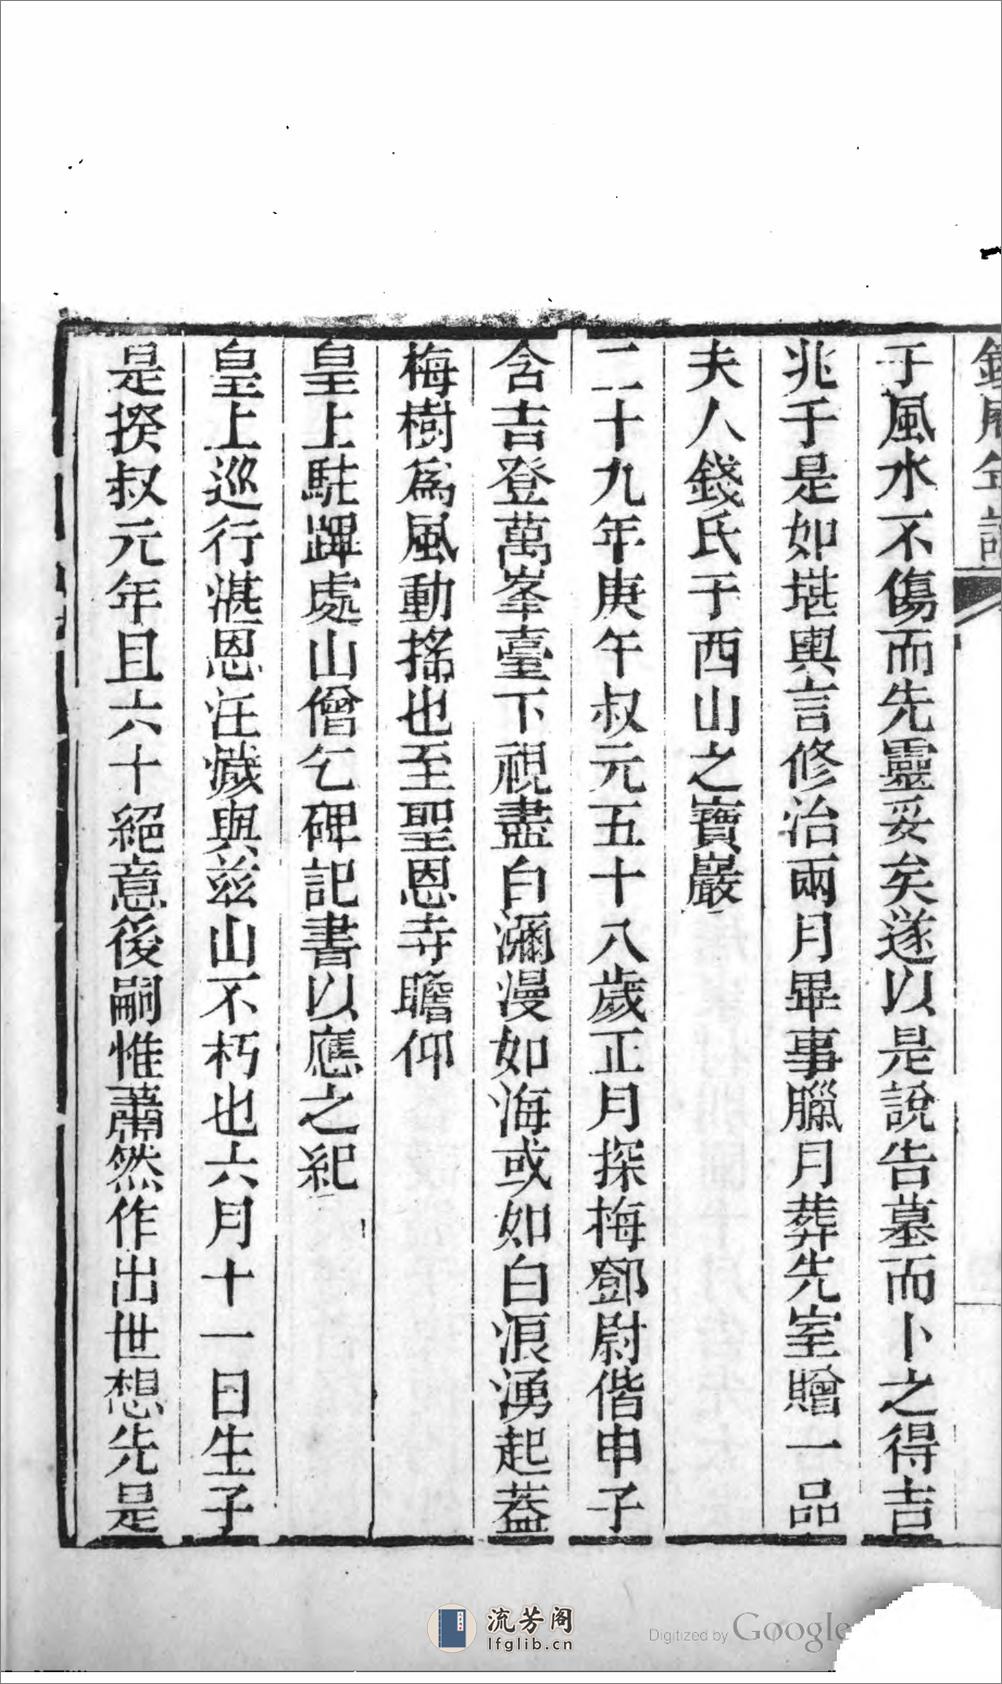 于風水不傷而先靈妥矣遂以是說告墓而卜之得吉
兆于是如堪輿言修治兩月畢事臘月葬先室贈一品
夫人錢氏于西山之寶巖
二十九年庚午叔元五十八歲正月探梅鄧尉偕申子
含吉登萬峯臺下視盡白瀰漫如海或如白浪湧起葢
梅樹為風動搖也至聖恩寺瞻仰
皇上駐蹕處山僧乞碑記書以應之紀
皇上巡行湛恩汪濊與兹山不朽也六月十一日生子
是揆叔元年且六十絕意後嗣惟蕭然作出世想先是
流芳阁
lfglib.cn
Digitized by Google